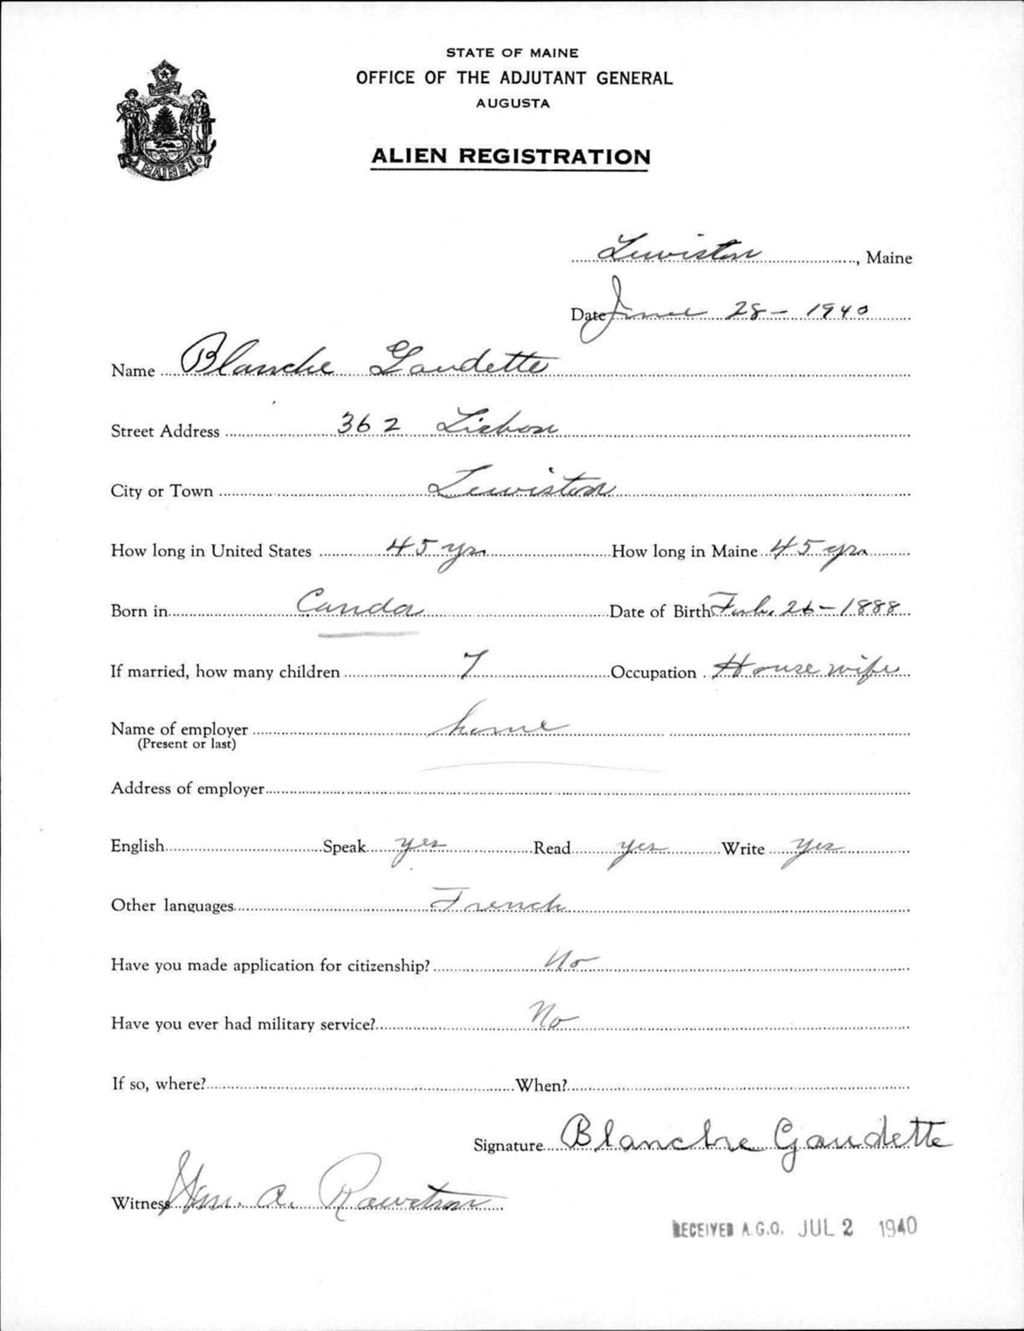 STATE OF MAINE
OFFICE OF THE ADJUTANT GENERAL
AUGUSTA
ALIEN REGISTRATION
MAINE
Lewiston, Maine
Date June 28 - 1940
Name Blanche Gaudette
Street Address 362 Lisbon
City or Town Lewiston
How long in United States 45 yrs How long in Maine 45 yrs
Born in Canda Date of Birth Feb. 26 - 1888
If married, how many children 7 Occupation Housewife
Name of employer home
(Present or last)
Address of employer
English Speak yes Read yes Write Yes
Other languages French
Have you made application for citizenship? No
Have you ever had military service? No
If so, where? When?
Signature Blanche Gaudette
Witness Wm. A. Rawstron
RECEIVED A.G.O. JUL 2 1940